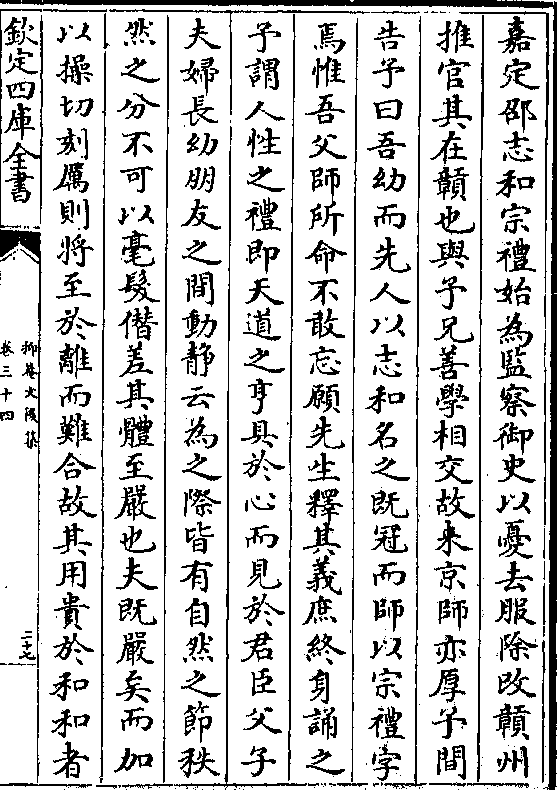 嘉定邵志和宗禮始為監察御史以憂去服除改贛州
推官其在贛也與予兄善學相交故来京師亦厚予間
告予曰吾幼而先人以志和名之既冠而師以宗禮字
焉惟吾父師所命不敢忘願先生釋其義庶終身誦之
予謂人性之禮即天道之亨具於心而見於君臣父子
夫婦長幼朋友之間動静云為之際皆有自然之節秩
然之分不可以毫髮僭差其體至嚴也夫既嚴矣而加
以操切刻厲則將至於離而難合故其用貴於和和者
欽定四庫全書
抑菴文後集
卷三十四
二十七